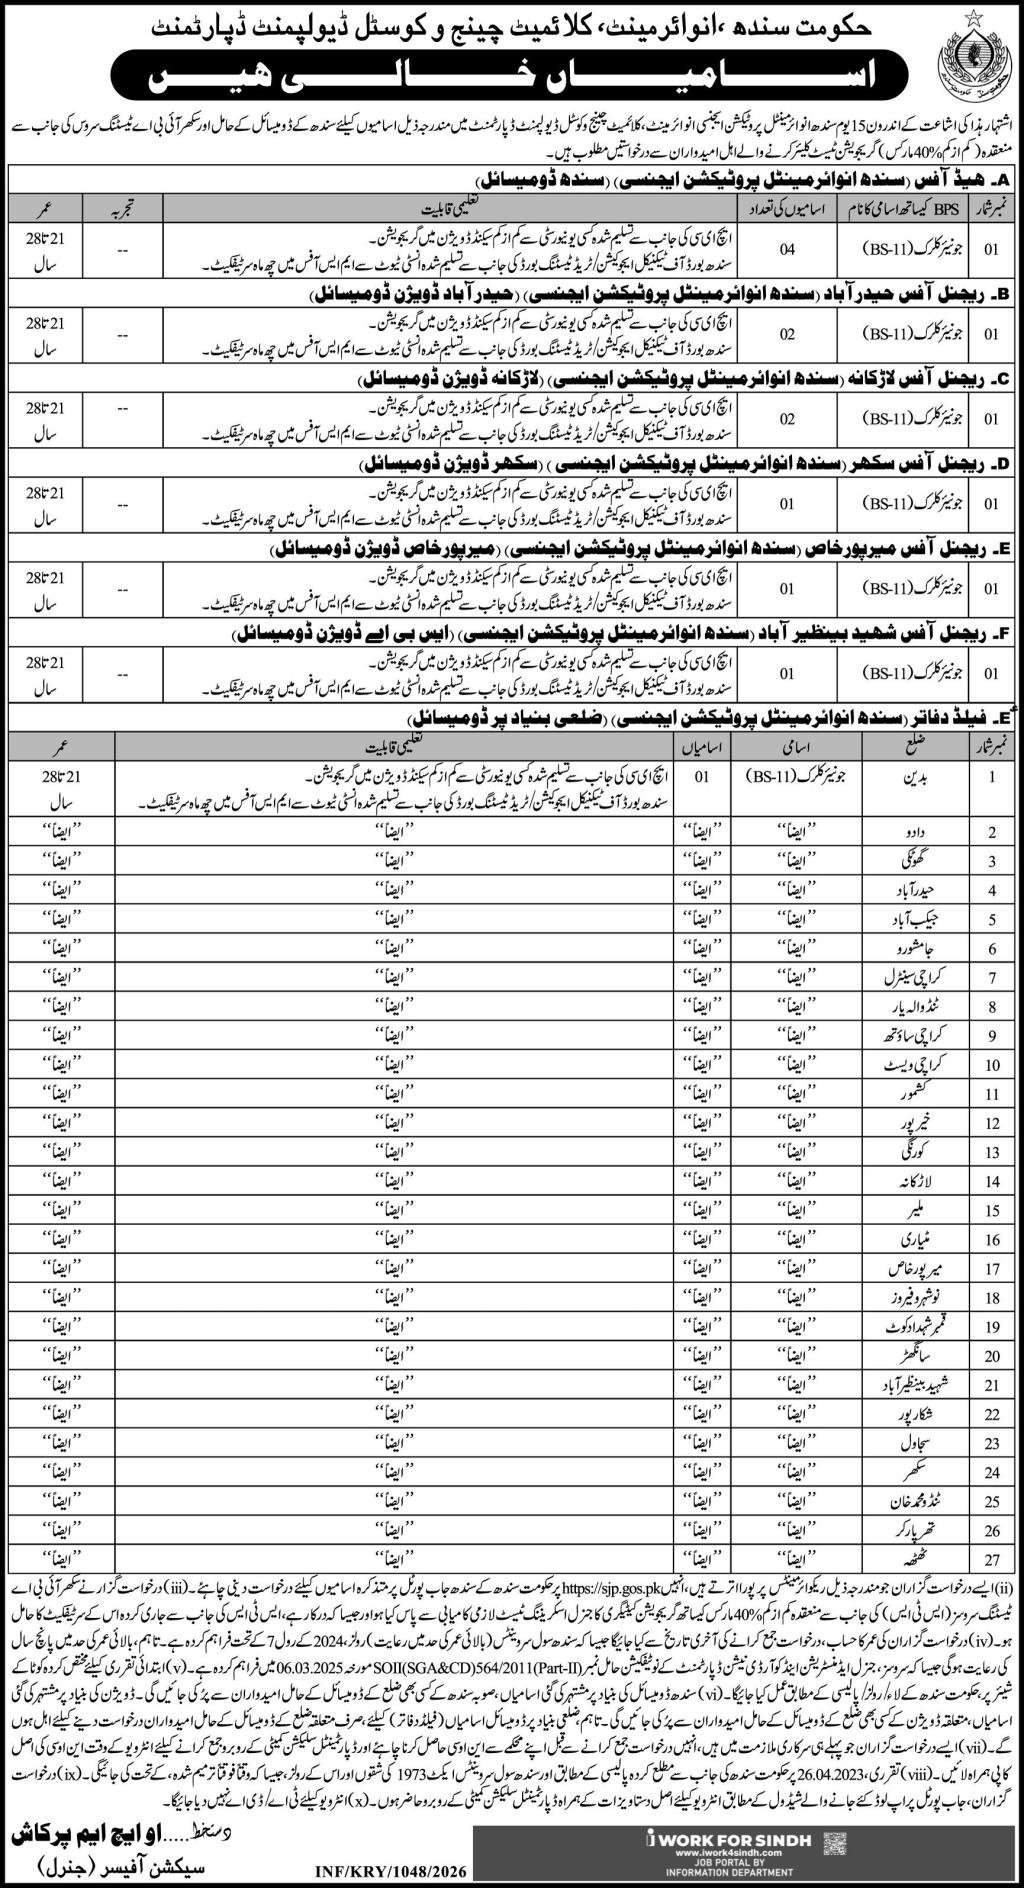 حکومت سندھ ،انوائرمینٹ، کلائمیٹ چینج و کوسٹل ڈیولپمنٹ ڈپارٹمنٹ
اسامیاں خالی ہیں
اشتہار ہذا کی اشاعت کے اندرون 15 یوم سندھ انوائرمینٹل پروٹیکشن ایجنسی انوائرمینٹ، کلائمیٹ چینج و کوسٹل ڈیولپمنٹ ڈپارٹمنٹ میں مندرجہ ذیل اسامیوں کیلئے سندھ کے ڈومیسائل کے حامل اور سکھر آئی بی اے ٹیسٹنگ سروس کی جانب سے
منعقدہ (کم از کم %40 مارکس) گریجویشن ٹیسٹ کلیئر کرنے والے اہل امیدواران سے درخواستیں مطلوب ہیں۔
A۔ ھیڈ آفس (سندھ انوائرمینٹل پروٹیکشن ایجنسی) (سندھ ڈومیسائل)
نمبر شمار BPS کیساتھ اسامی کا نام اسامیوں کی تعداد تعلیمی قابلیت تجربہ عمر
01 جونیئر کلرک (BS-11) 04 ایچ ای سی کی جانب سے تسلیم شدہ کسی یونیورسٹی سے کم از کم سیکنڈ ڈویژن میں گریجویشن۔ -- 21 تا 28
سندھ بورڈ آف ٹیکنیکل ایجوکیشن/ٹریڈ ٹیسٹنگ بورڈ کی جانب سے تسلیم شدہ انسٹی ٹیوٹ سے ایم ایس آفس میں چھ ماہ سرٹیفکیٹ۔ سال
B۔ ریجنل آفس حیدرآباد (سندھ انوائرمینٹل پروٹیکشن ایجنسی) (حیدرآباد ڈویژن ڈومیسائل)
01 جونیئر کلرک (BS-11) 02 ایچ ای سی کی جانب سے تسلیم شدہ کسی یونیورسٹی سے کم از کم سیکنڈ ڈویژن میں گریجویشن۔ -- 21 تا 28
سندھ بورڈ آف ٹیکنیکل ایجوکیشن/ٹریڈ ٹیسٹنگ بورڈ کی جانب سے تسلیم شدہ انسٹی ٹیوٹ سے ایم ایس آفس میں چھ ماہ سرٹیفکیٹ۔ سال
C۔ ریجنل آفس لاڑکانہ (سندھ انوائرمینٹل پروٹیکشن ایجنسی) (لاڑکانہ ڈویژن ڈومیسائل)
01 جونیئر کلرک (BS-11) 02 ایچ ای سی کی جانب سے تسلیم شدہ کسی یونیورسٹی سے کم از کم سیکنڈ ڈویژن میں گریجویشن۔ -- 21 تا 28
سندھ بورڈ آف ٹیکنیکل ایجوکیشن/ٹریڈ ٹیسٹنگ بورڈ کی جانب سے تسلیم شدہ انسٹی ٹیوٹ سے ایم ایس آفس میں چھ ماہ سرٹیفکیٹ۔ سال
D۔ ریجنل آفس سکھر (سندھ انوائرمینٹل پروٹیکشن ایجنسی) (سکھر ڈویژن ڈومیسائل)
01 جونیئر کلرک (BS-11) 01 ایچ ای سی کی جانب سے تسلیم شدہ کسی یونیورسٹی سے کم از کم سیکنڈ ڈویژن میں گریجویشن۔ -- 21 تا 28
سندھ بورڈ آف ٹیکنیکل ایجوکیشن/ٹریڈ ٹیسٹنگ بورڈ کی جانب سے تسلیم شدہ انسٹی ٹیوٹ سے ایم ایس آفس میں چھ ماہ سرٹیفکیٹ۔ سال
E۔ ریجنل آفس میرپورخاص (سندھ انوائرمینٹل پروٹیکشن ایجنسی) (میرپورخاص ڈویژن ڈومیسائل)
01 جونیئر کلرک (BS-11) 01 ایچ ای سی کی جانب سے تسلیم شدہ کسی یونیورسٹی سے کم از کم سیکنڈ ڈویژن میں گریجویشن۔ -- 21 تا 28
سندھ بورڈ آف ٹیکنیکل ایجوکیشن/ٹریڈ ٹیسٹنگ بورڈ کی جانب سے تسلیم شدہ انسٹی ٹیوٹ سے ایم ایس آفس میں چھ ماہ سرٹیفکیٹ۔ سال
F۔ ریجنل آفس شھید بینظیر آباد (سندھ انوائرمینٹل پروٹیکشن ایجنسی) (ایس بی اے ڈویژن ڈومیسائل)
01 جونیئر کلرک (BS-11) 01 ایچ ای سی کی جانب سے تسلیم شدہ کسی یونیورسٹی سے کم از کم سیکنڈ ڈویژن میں گریجویشن۔ -- 21 تا 28
سندھ بورڈ آف ٹیکنیکل ایجوکیشن/ٹریڈ ٹیسٹنگ بورڈ کی جانب سے تسلیم شدہ انسٹی ٹیوٹ سے ایم ایس آفس میں چھ ماہ سرٹیفکیٹ۔ سال
E۔ فیلڈ دفاتر (سندھ انوائرمینٹل پروٹیکشن ایجنسی) (ضلعی بنیاد پر ڈومیسائل)
نمبر شمار ضلع اسامی اسامیاں تعلیمی قابلیت عمر
1 بدین جونیئر کلرک (BS-11) 01 ایچ ای سی کی جانب سے تسلیم شدہ کسی یونیورسٹی سے کم از کم سیکنڈ ڈویژن میں گریجویشن۔ 21 تا 28
سندھ بورڈ آف ٹیکنیکل ایجوکیشن/ٹریڈ ٹیسٹنگ بورڈ کی جانب سے تسلیم شدہ انسٹی ٹیوٹ سے ایم ایس آفس میں چھ ماہ سرٹیفکیٹ۔ سال
2 دادو ”ایضاً“ ”ایضاً“ ”ایضاً“ ”ایضاً“
3 گھوٹکی ”ایضاً“ ”ایضاً“ ”ایضاً“ ”ایضاً“
4 حیدرآباد ”ایضاً“ ”ایضاً“ ”ایضاً“ ”ایضاً“
5 جیکب آباد ”ایضاً“ ”ایضاً“ ”ایضاً“ ”ایضاً“
6 جامشورو ”ایضاً“ ”ایضاً“ ”ایضاً“ ”ایضاً“
7 کراچی سینٹرل ”ایضاً“ ”ایضاً“ ”ایضاً“ ”ایضاً“
8 ٹنڈوالہ یار ”ایضاً“ ”ایضاً“ ”ایضاً“ ”ایضاً“
9 کراچی ساؤتھ ”ایضاً“ ”ایضاً“ ”ایضاً“ ”ایضاً“
10 کراچی ویسٹ ”ایضاً“ ”ایضاً“ ”ایضاً“ ”ایضاً“
11 کشمور ”ایضاً“ ”ایضاً“ ”ایضاً“ ”ایضاً“
12 خیرپور ”ایضاً“ ”ایضاً“ ”ایضاً“ ”ایضاً“
13 کورنگی ”ایضاً“ ”ایضاً“ ”ایضاً“ ”ایضاً“
14 لاڑکانہ ”ایضاً“ ”ایضاً“ ”ایضاً“ ”ایضاً“
15 ملیر ”ایضاً“ ”ایضاً“ ”ایضاً“ ”ایضاً“
16 مٹیاری ”ایضاً“ ”ایضاً“ ”ایضاً“ ”ایضاً“
17 میرپورخاص ”ایضاً“ ”ایضاً“ ”ایضاً“ ”ایضاً“
18 نوشہروفیروز ”ایضاً“ ”ایضاً“ ”ایضاً“ ”ایضاً“
19 قمبر شہدادکوٹ ”ایضاً“ ”ایضاً“ ”ایضاً“ ”ایضاً“
20 سانگھڑ ”ایضاً“ ”ایضاً“ ”ایضاً“ ”ایضاً“
21 شہید بینظیر آباد ”ایضاً“ ”ایضاً“ ”ایضاً“ ”ایضاً“
22 شکارپور ”ایضاً“ ”ایضاً“ ”ایضاً“ ”ایضاً“
23 سجاول ”ایضاً“ ”ایضاً“ ”ایضاً“ ”ایضاً“
24 سکھر ”ایضاً“ ”ایضاً“ ”ایضاً“ ”ایضاً“
25 ٹنڈو محمد خان ”ایضاً“ ”ایضاً“ ”ایضاً“ ”ایضاً“
26 تھرپارکر ”ایضاً“ ”ایضاً“ ”ایضاً“ ”ایضاً“
27 ٹھٹھہ ”ایضاً“ ”ایضاً“ ”ایضاً“ ”ایضاً“
(ii) ایسے درخواست گزاران جو مندرجہ ذیل ریکوائرمینٹس پر پورا اترتے ہیں، انہیں https://sjp.gos.pk پر حکومت سندھ کے سندھ جاب پورٹل پر متذکرہ اسامیوں کیلئے درخواست دینی چاہئے۔ (iii) درخواست گزار نے سکھر آئی بی اے
ٹیسٹنگ سروسز (ایس ٹی ایس) کی جانب سے منعقدہ کم از کم %40 مارکس کیساتھ گریجویشن کیٹیگری کا جنرل اسکریننگ ٹیسٹ لازمی کامیابی سے پاس کیا ہو اور جیسا کہ درکار ہے، ایس ٹی ایس کی جانب سے جاری کردہ اس کے سرٹیفکیٹ کا حامل
ہو۔ (iv) درخواست گزاران کی عمر کا حساب، درخواست جمع کرانے کی آخری تاریخ سے کیا جائیگا جیسا کہ سندھ سول سرونٹس (بالائی عمر کی حد میں رعایت) رولز، 2024 کے رول 7 کے تحت فراہم کردہ ہے۔ تاہم، بالائی عمر کی حد میں پانچ سال
کی رعایت ہوگی جیسا کہ سروسز، جنرل ایڈمنسٹریشن اینڈ کوآرڈی نیشن ڈپارٹمنٹ کے نوٹیفکیشن حامل نمبر SOII(SGA&CD)564/2011(Part-II) مورخہ 06.03.2025 میں فراہم کردہ ہے۔ (v) ابتدائی تقرری کیلئے مختص کردہ کوٹا کے
شیئر پر، حکومت سندھ کے لاء/رولز/پالیسی کے مطابق عمل کیا جائیگا۔ (vi) سندھ ڈومیسائل کی بنیاد پر مشتہر کی گئی اسامیاں، صوبہ سندھ کے کسی بھی ضلع کے ڈومیسائل کے حامل امیدواران سے پر کی جائیں گی۔ ڈویژن کی بنیاد پر مشتہر کی گئی
اسامیاں، متعلقہ ڈویژن کے کسی بھی ضلع کے ڈومیسائل کے حامل امیدواران سے پر کی جائیں گی۔ تاہم، ضلعی بنیاد پر ڈومیسائل اسامیاں (فیلڈ دفاتر) کیلئے، صرف متعلقہ ضلع کے ڈومیسائل کے حامل امیدواران درخواست دینے کیلئے اہل ہوں
گے۔ (vii) ایسے درخواست گزاران جو پہلے ہی سرکاری ملازمت میں ہیں، انہیں درخواست جمع کرانے سے قبل اپنے محکمے سے این او سی حاصل کرنا چاہئے اور ڈپارٹمنٹل سلیکشن کمیٹی کے روبرو جمع کرانے کیلئے انٹرویو کے وقت این او سی کی اصل
کاپی ہمراہ لائیں۔ (viii) تقرری، 26.04.2023 پر حکومت سندھ کی جانب سے مطلع کردہ پالیسی کے مطابق اور سندھ سول سرونٹس ایکٹ 1973 کی شقوں اور اس کے رولز، جیسا کہ وقتاً فوقتاً ترمیم شدہ، کے تحت کی جائیگی۔ (ix) درخواست
گزاران، جاب پورٹل پر اپ لوڈ کئے جانے والے شیڈول کے مطابق انٹرویو کیلئے اصل دستاویزات کے ہمراہ ڈپارٹمنٹل سلیکشن کمیٹی کے روبرو حاضر ہوں۔ (x) انٹرویو کیلئے ٹی اے/ڈی اے نہیں دیا جائیگا۔
دستخط.....او ایچ ایم پرکاش
سیکشن آفیسر (جنرل)
INF/KRY/1048/2026
i WORK FOR SINDH
www.iwork4sindh.com
JOB PORTAL BY
INFORMATION DEPARTMENT